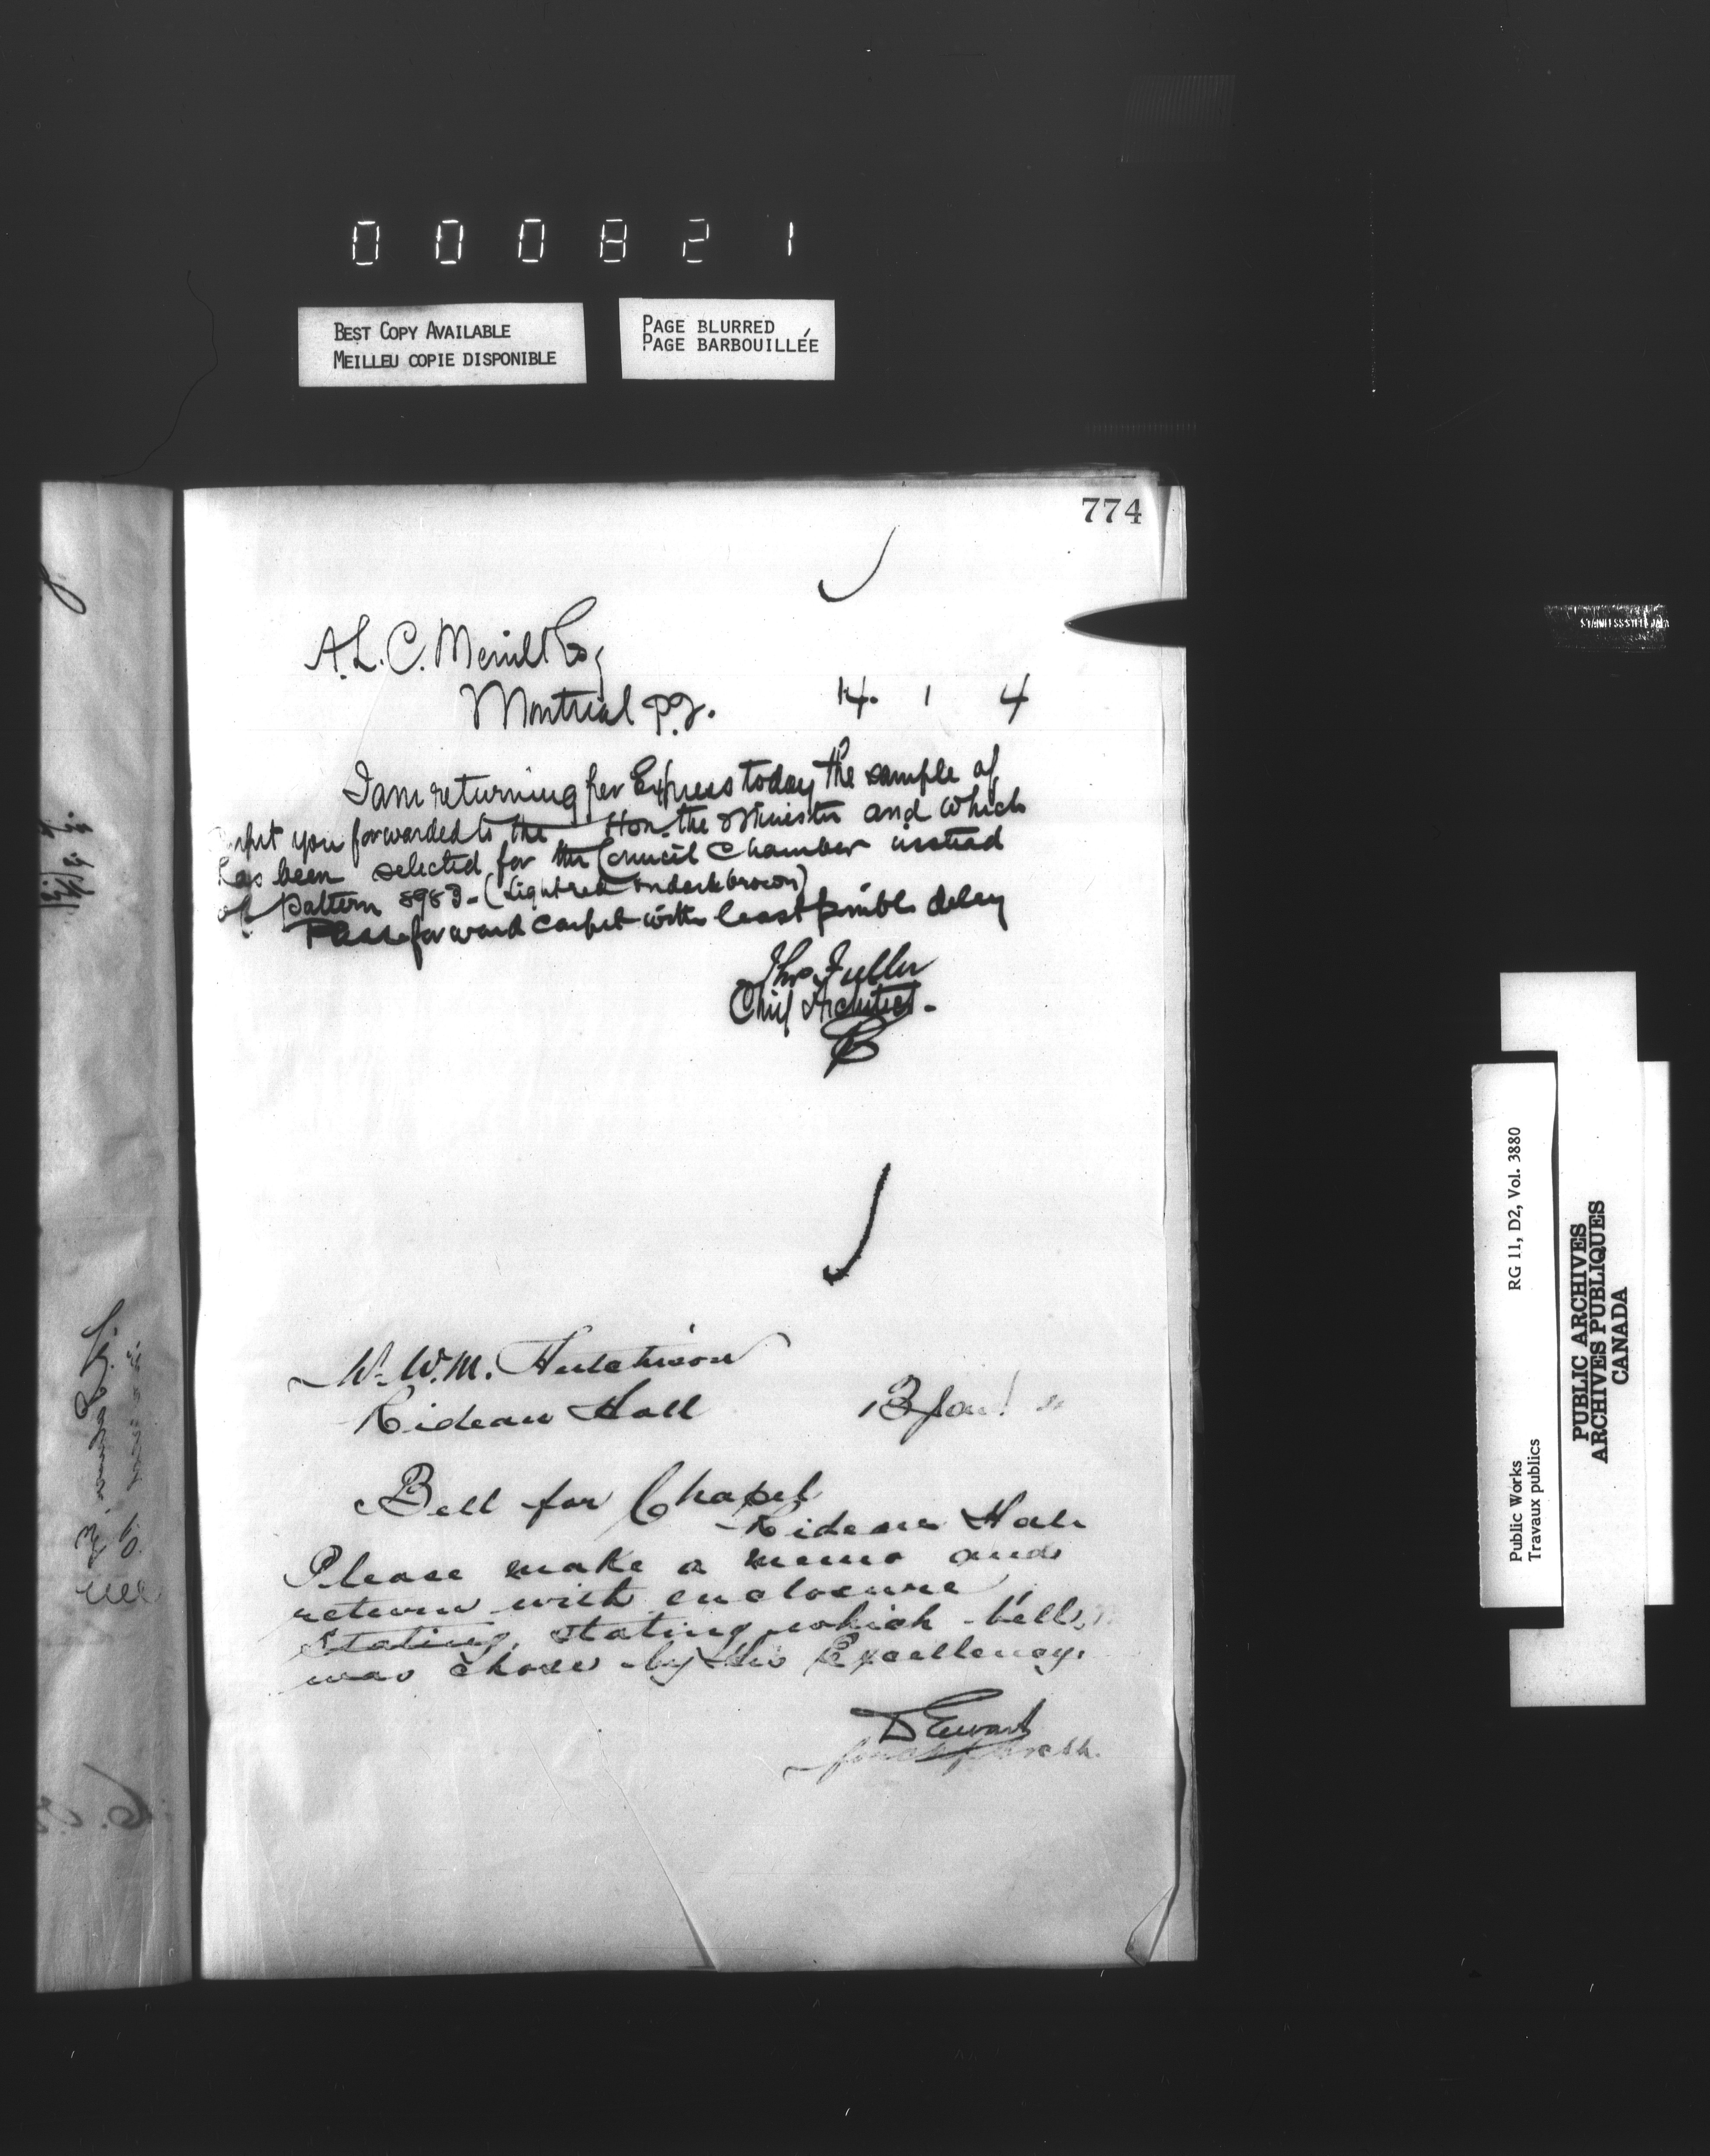 000821
BEST COPY AVAILABLE
MEILLEU COPIE DISPONIBLE
PAGE BLURRED
PAGE BARBOUILLÉE
774
A.L.C. Merrill Esq
Montreal P.Q.
14. 1 4
I am returning per Express today the sample of
carpet you forwarded to the Hon. the Minister and which
has been selected for the Council Chamber instead
of pattern 8983 - (Light red on dark brown)
Please forward carpet with least possible delay
Thos Fuller
Chief Architect.
W. W. M. Hutchison
Rideau Hall
13 Jan
Bell for Chapel
Rideau Hall
Please make a memo and
return with enclosure
stating, stating which bell,
was chose by His Excellency.
D Ewart
RG 11, D2, Vol. 3880
Public Works
Travaux publics
PUBLIC ARCHIVES
ARCHIVES PUBLIQUES
CANADA